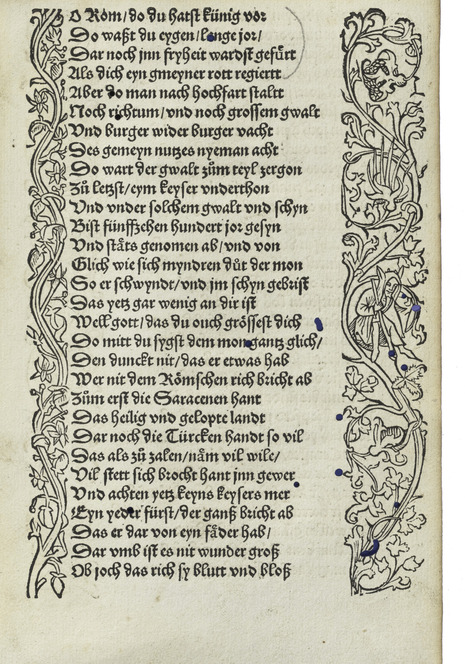 O Rom/do du hatst künig vor
Do waßt du eygen/lange jor/
Dar noch jnn fryheit wardst gefürt
Als dich eyn gmeyner rott regiertt
Aber do man nach hochfart staltt
Noch richtum/vnd noch grossem gwalt
Vnd burger wider burger vacht
Des gemeyn nutzes nyeman acht
Do wart der gwalt zům teyl zergon
Zů letzst/eym keyser vnderthon
Vnd vnder solchem gwalt vnd schyn
Bist fünffzehen hundert jor gesyn
Vnd stäts genomen ab/vnd von
Glich wie sich myndren důt der mon
So er schwyndt/vnd jm schyn gebrist
Das yetz gar wenig an dir ist
Well gott/das du ouch grössest dich
Do mitt du sygst dem mon gantz glich/
Den dunckt nit/das er etwas hab
Wer nit dem Römschen rich bricht ab
Zům erst die Saracenen hant
Das heilig vnd gelopte landt
Dar noch die Türcken handt so vil
Das als zů zalen/näm vil wile/
Vil stett sich brocht hant jnn gewer
Vnd achten yetz keyns keysers mer
Eyn yeder fürst/der ganß bricht ab
Das er dar von eyn fäder hab/
Dar vmb ist es nit wunder groß
Ob joch das rich sy blutt vnd bloß